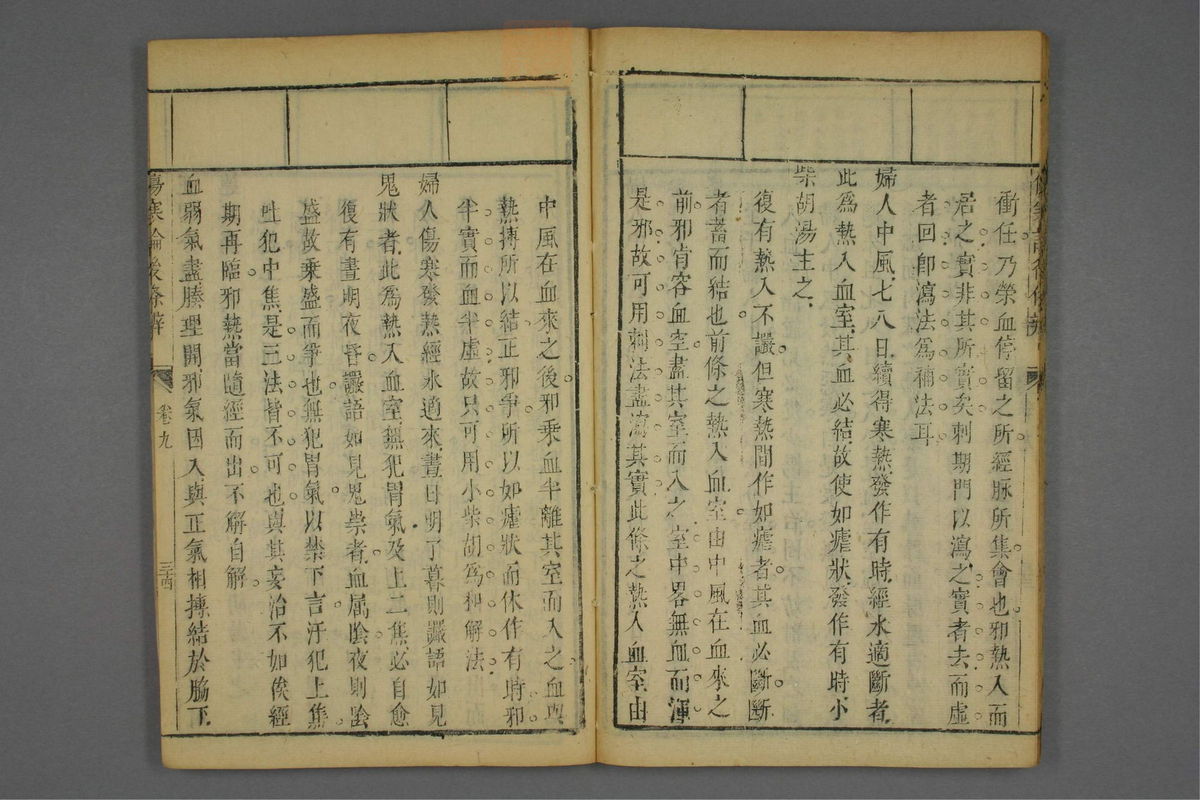 衝任乃榮血停留之所經脉所集會也邪熱入而
居之實非其所實矣刺期門以瀉之實者去而虛
者回卽瀉法爲補法耳
婦人中風七八日續得寒熱發作有時經水適斷者
此爲熱入血室其血必結故使如瘧狀發作有時小
柴胡湯主之
復有熱入不讝但寒熱間作如瘧者其血必斷斷
者蓄而結也前條之熱入血室由中風在血來之
前邪肯容血空盡其室而入之室中畧無血而渾
是邪故可用刺法盡瀉其實此條之熱入血室由
中風在血來之後邪乘血半離其室而入之血與
熱搏所以結正邪爭所以如瘧狀而休作有時邪
半實而血半虛故只可用小柴胡爲和解法
婦人傷寒發熱經水適來晝日明了暮則讝語如見
鬼狀者此爲熱入血室無犯胃氣及上二焦必自愈
復有晝明夜昏讝語如見鬼祟者血属陰夜則陰
盛故乘盛而爭也無犯胃氣以禁下言汗犯上焦
吐犯中焦是三法皆不可也與其妄治不如俟經
期再臨邪熱當隨經而出不解自解
血弱氣盡腠理開邪氣因入與正氣相摶結於脇下
傷寒論後條辨
卷九